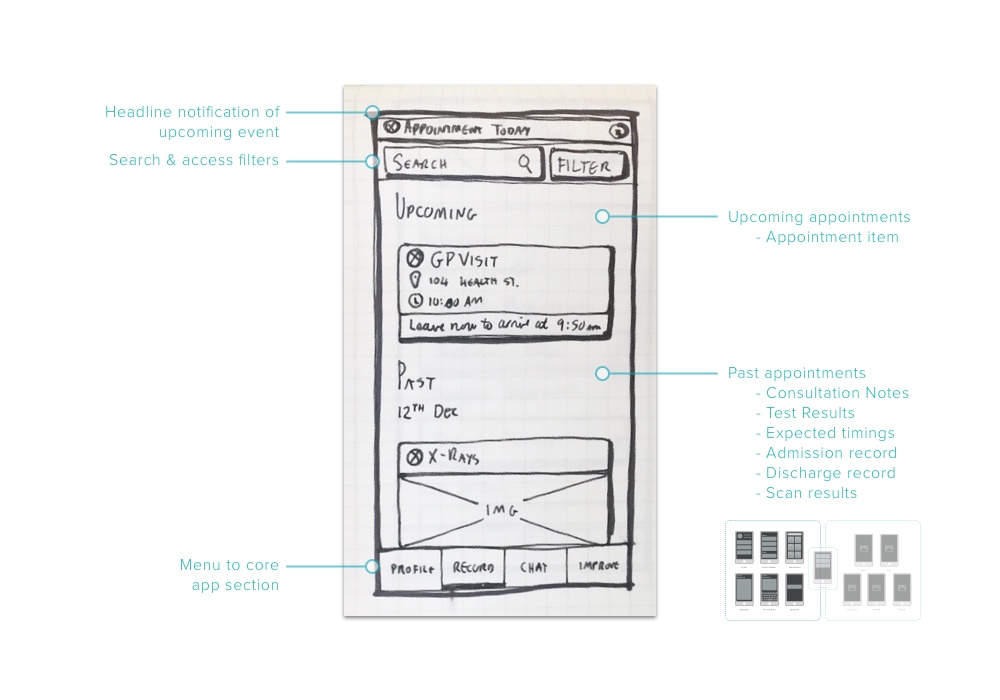 Headline notification of
upcoming event
Search & access filters
Menu to core
app section
APPOINTMENT TODAY
SEARCH
FILTER
UPCOMING
GP VISIT
104 HEALTH ST.
10:00 AM
Leave now to arrive at 9:50am
PAST
12TH DEC
X-RAYS
IMG
PROFILE
RECORD
CHAT
IMPROVE
Upcoming appointments
- Appointment item
Past appointments
- Consultation Notes
- Test Results
- Expected timings
- Admission record
- Discharge record
- Scan results